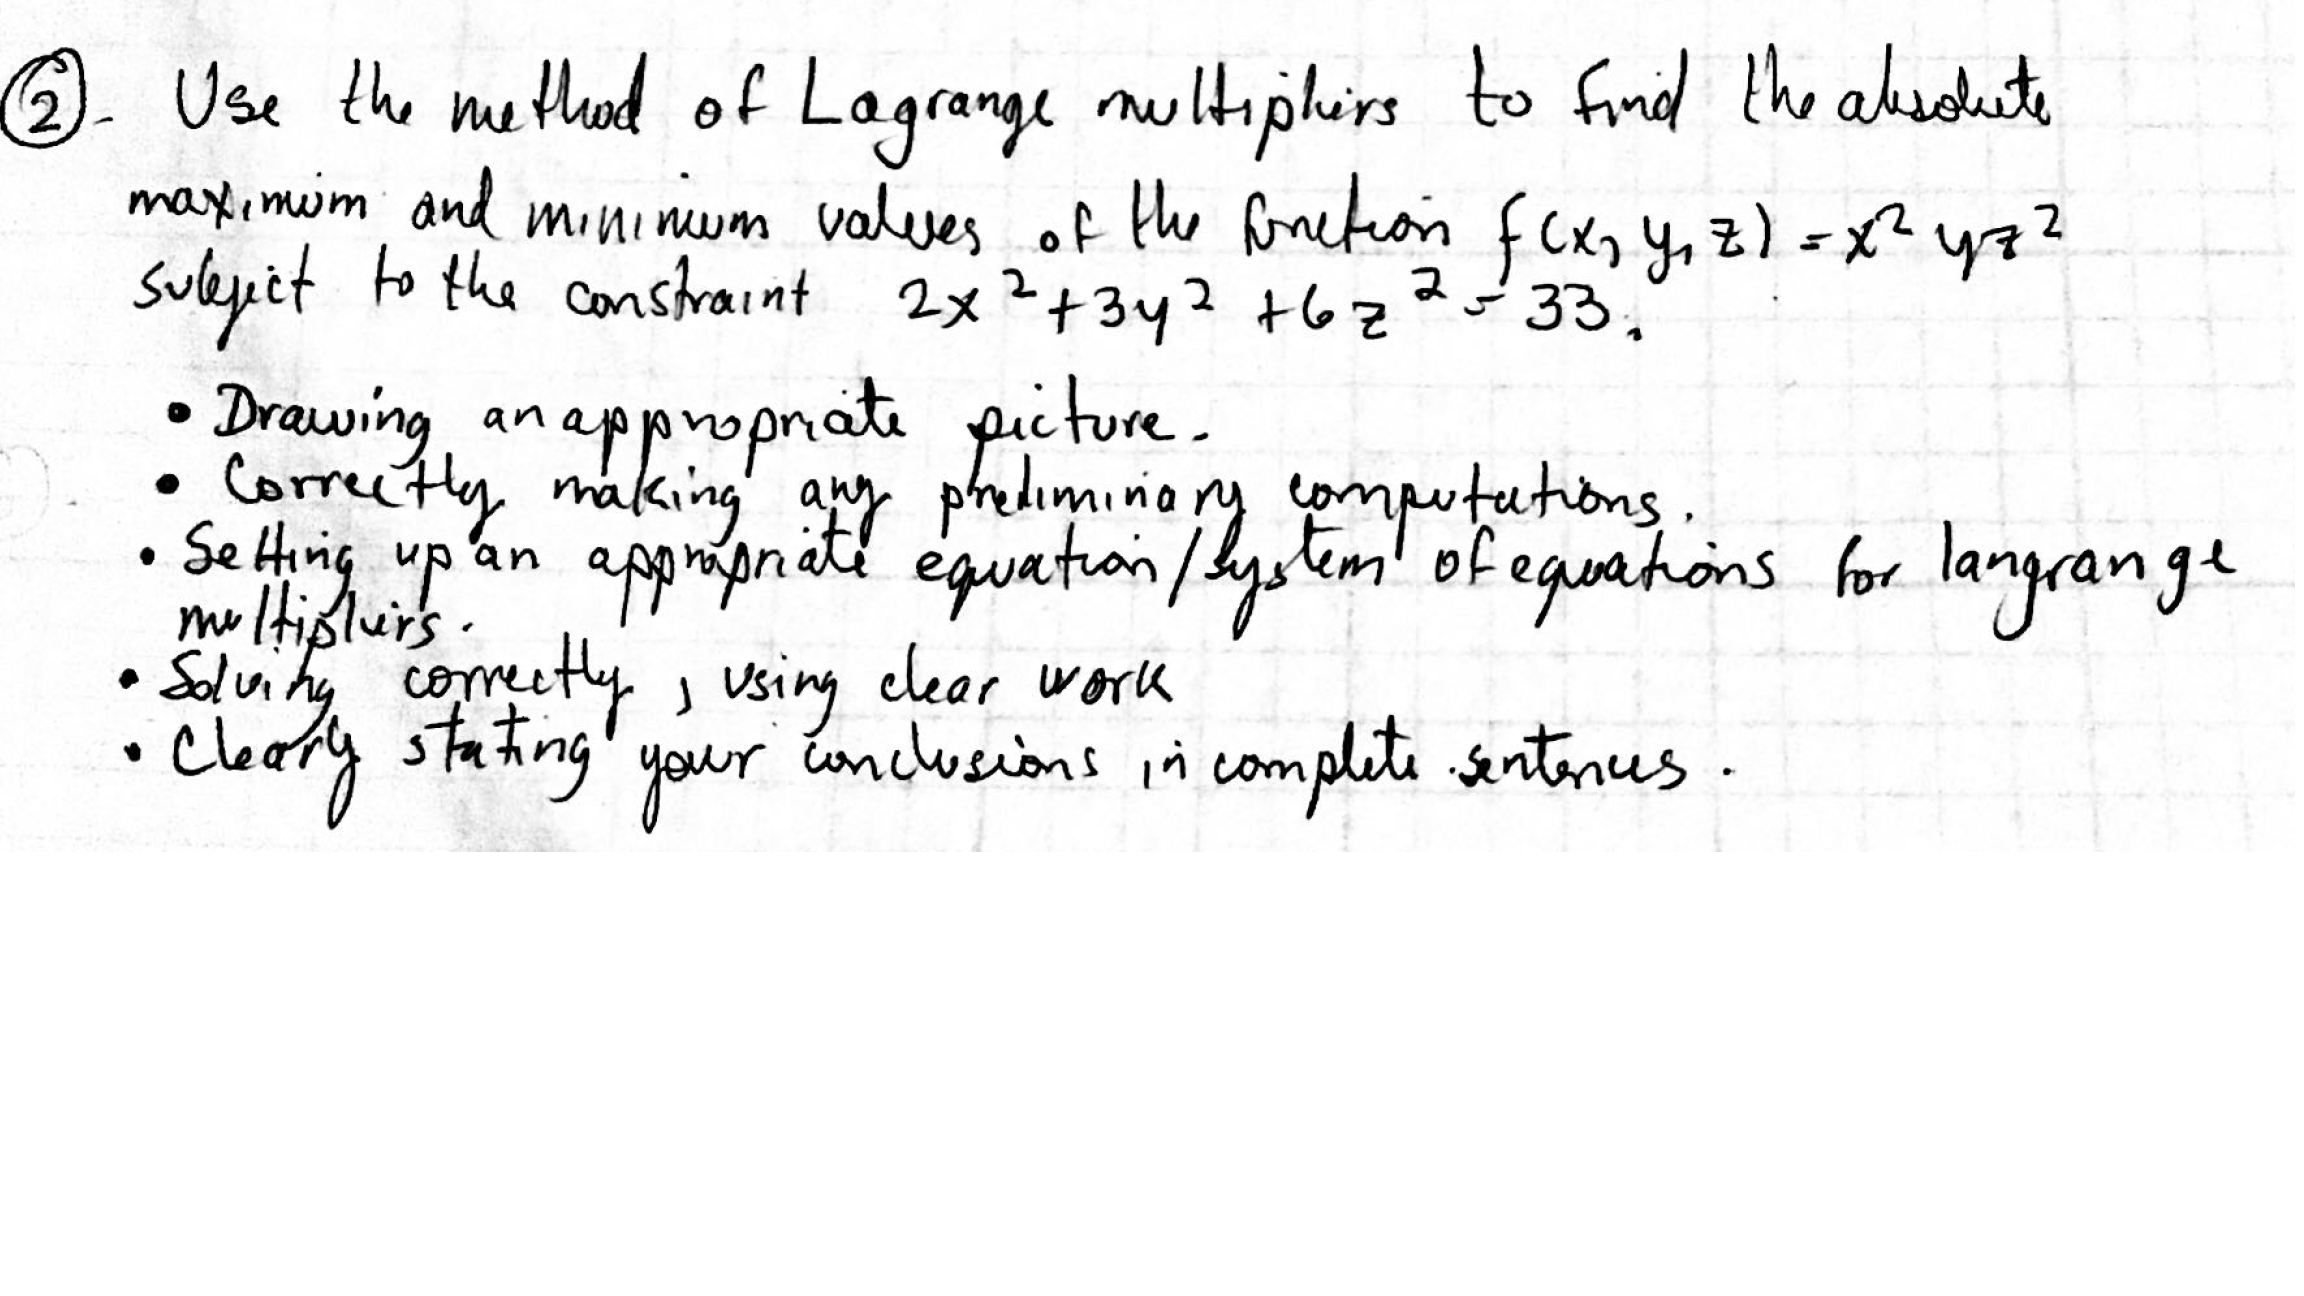 ②. Use the method of Lagrange multipliers to find the absolute
maximum and minimum values of the function f(x, y, z) = x² y z²
subject to the constraint 2x² + 3y² + 6z² = 33.
• Drawing an appropriate picture.
• Correctly making any preliminary computations.
• Setting up an appropriate equation/system of equations for langrange
multipliers.
• Solving correctly, using clear work
• Clearly stating your conclusions in complete sentences.